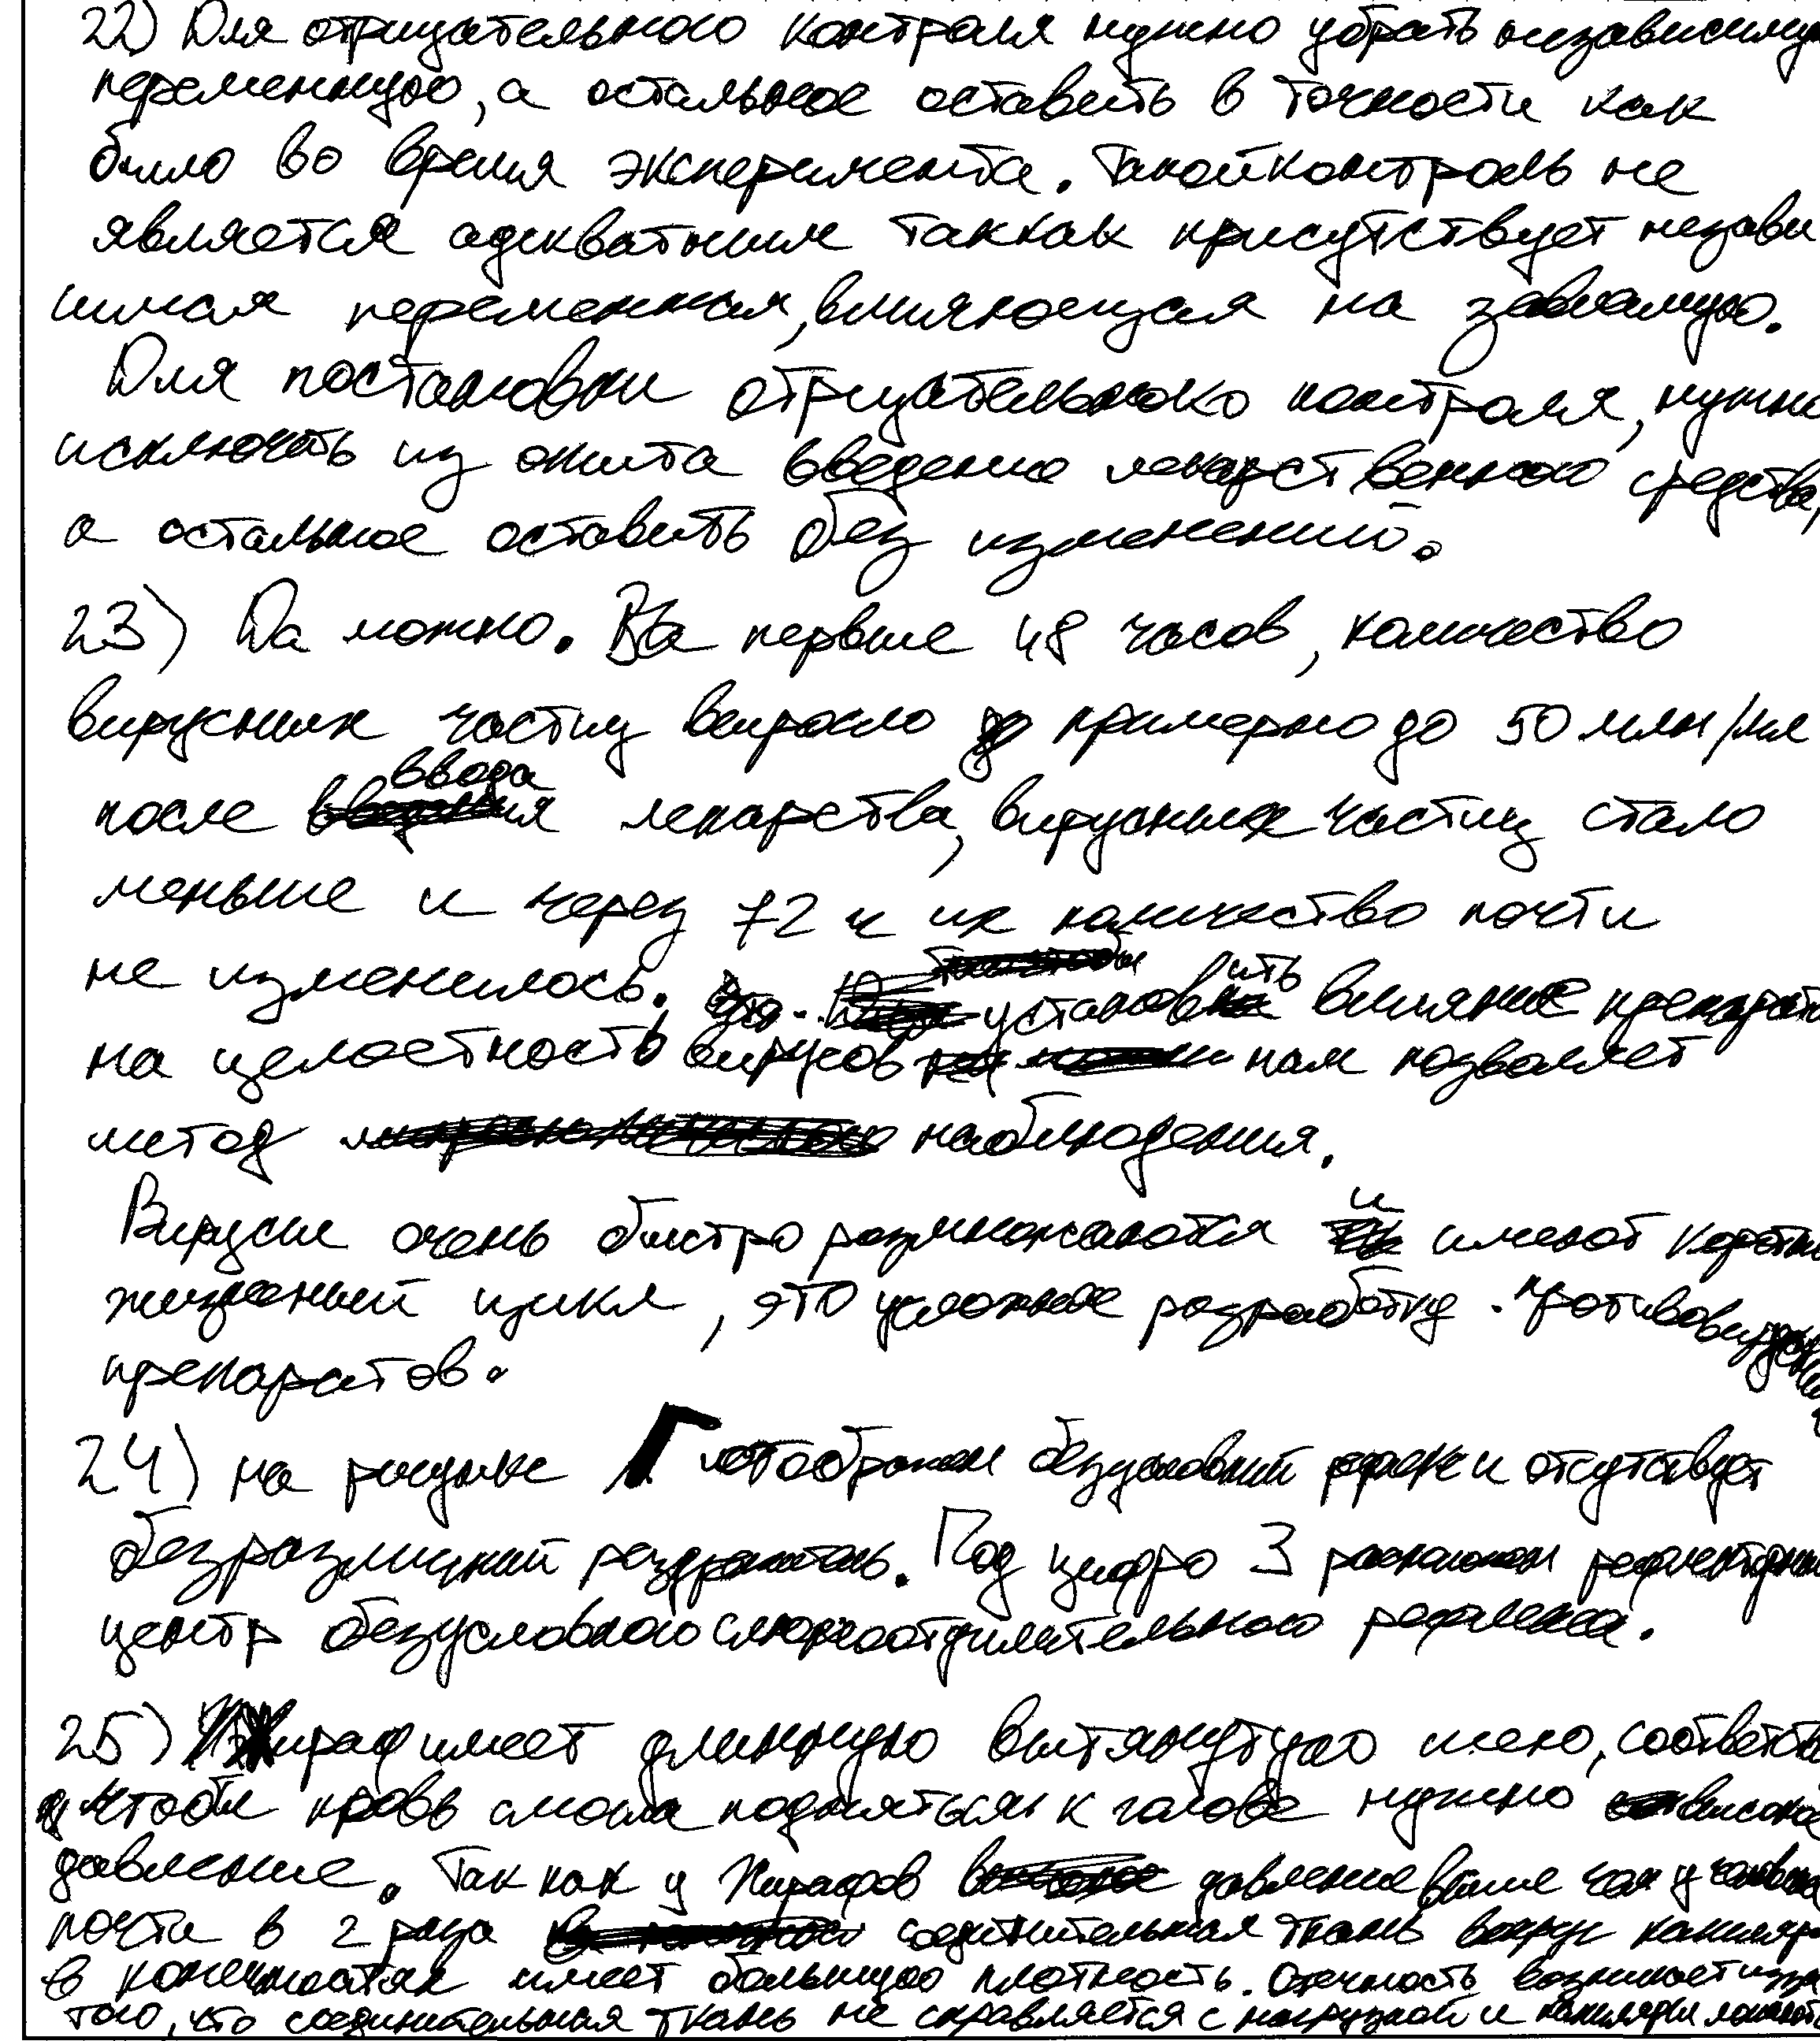 22) Для отрицательного контроля нужно убрать независиму
переменную, а остальное оставить в точности как
было во время эксперимента. Такой контроль не
является адекватным так как присутствует незави
симая переменная, влияющая на
Для постановки отрицательного контроля, нужно
исключить из опыта введение лекарственного средства,
а остальное оставить без изменений.
23) Да можно. За первые 48 часов, количество
вирусных частиц выросло примерно до 50 млн/мл
после ввода лекарства, вирусных частиц стало
меньше и через 72 ч их количество почти
не изменилось. установить влияние препарат
на целостность вирусов нам позволяет
метод наблюдения.
Вирусы очень быстро размножаются и имеют коротки
жизненный цикл, это усложняе разработку противовирусн
препаратов.
24) на рисунке Г отображен безусловный и отсутствует
безразличный раздражитель. Под цифро 3 расположен
центр безусловного слюноотделительного рефлекса.
25) Жираф имеет длинную вытянутую шею, соответств
чтобы кровь смогла подняться к голове нужно высокое
давление. Так как у Жирафов давление выше чем у человека
почти в 2 раза соединительная ткань вокруг капилляр
в конечностях имеет большую плотность. Отечность возникает из за
того, что соединительная ткань не справляется с нагрузкой и капилляры